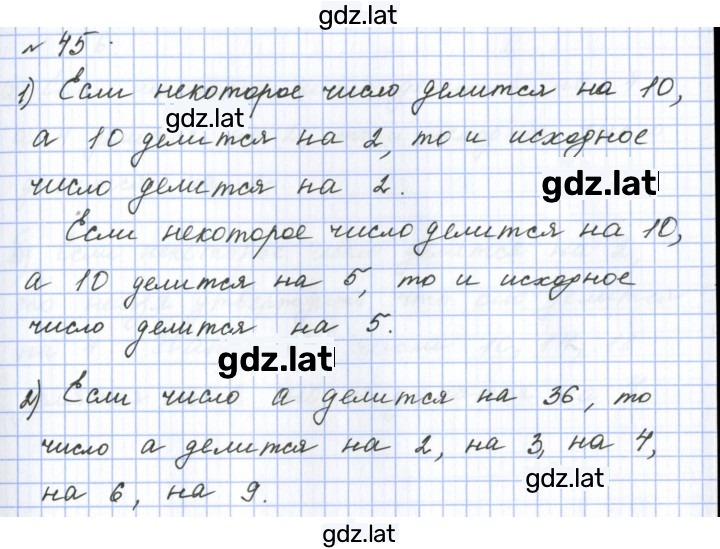 gdz.lat
№ 45.
1) Если некоторое число делится на 10,
gdz.lat
а 10 делится на 2, то и исходное
число делится на 2.
gdz.lat
Если некоторое число делится на 10,
а 10 делится на 5, то и исходное
число делится на 5.
gdz.lat
2) Если число а делится на 36, то
число а делится на 2, на 3, на 4,
gdz.lat
на 6, на 9.
gdz.lat